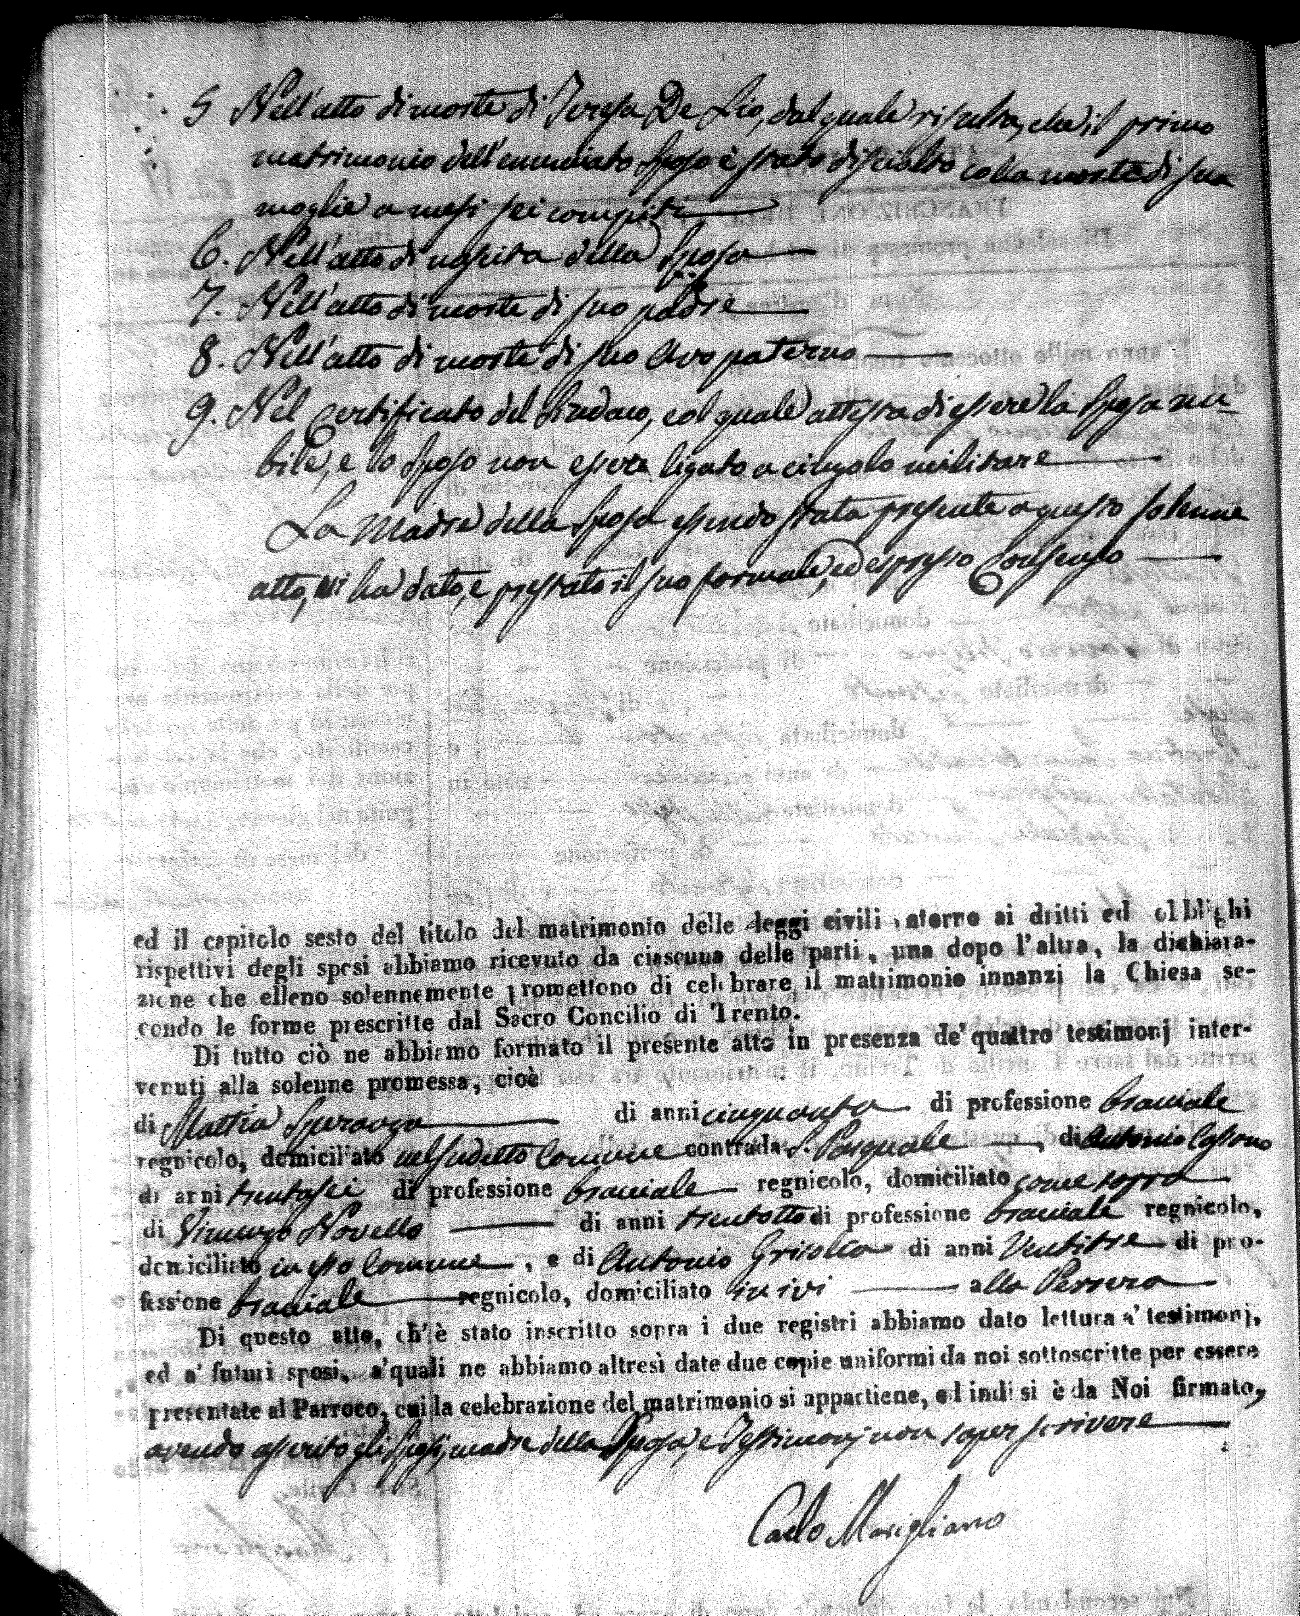 5 Nell'atto di morte di Teresa De Lio, dal quale risulta, che il primo
matrimonio dell'enunciato Sposo è stato disciolto colla morte di sua
moglie a mesi sei compiti
6. Nell'atto di nascita della Sposa
7. Nell'atto di morte di suo padre
8. Nell'atto di morte di suo Avo paterno
9. Nel Certificato del Sindaco, col quale attesta di essere la Sposa nu-
bile, e lo Sposo non essere ligato a cingolo militare
La Madre della Sposa essendo stata presente a questo solenne
atto, vi ha dato, e prestato il suo formale, ed espresso Consenso
ed il capitolo sesto del titolo del matrimonio delle leggi civili intorno ai dritti ed obblighi
rispettivi degli sposi abbiamo ricevuto da ciascuna delle parti, una dopo l'altra, la dichiara-
zione che elleno solennemente promettono di celebrare il matrimonio innanzi la Chiesa se-
condo le forme prescritte dal Sacro Concilio di Trento.
Di tutto ciò ne abbiamo formato il presente atto in presenza de' quattro testimonj inter-
venuti alla solenne promessa, cioè
di Mattia Speranza di anni cinquanta di professione bracciale
regnicolo, domiciliato nel sudetto Comune contrada S. Pasquale, di Antonio Cassano
di anni trentasei di professione bracciale regnicolo, domiciliato come sopra
di Vincenzo Novello di anni trentotto di professione bracciale regnicolo,
domiciliato in Comune, e di Antonio Grisolia di anni Ventitre di pro-
fessione bracciale regnicolo, domiciliato in ivi alla
Di questo atto, ch'è stato inscritto sopra i due registri abbiamo dato lettura a' testimonj,
ed a' futuri sposi, a' quali ne abbiamo altresì date due copie uniformi da noi sottoscritte per essere
presentate al Parroco, cui la celebrazione del matrimonio si appartiene, ed indi si è da Noi firmato,
avendo asserito gli Sposi, madre della Sposa, e Testimonj non saper scrivere
Carlo Marigliano